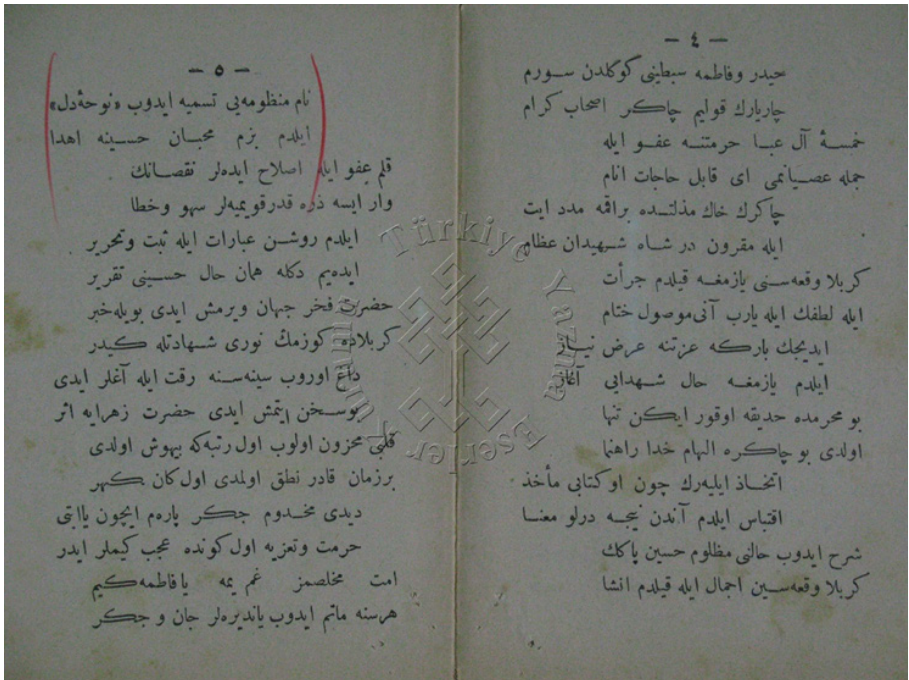 — ٤ —
حیدر وفاطمه سبطینی كوكلدن سورم
چاریارك قولیم چاكر اصحاب كرام
خمسهٔ آل عبا حرمتنه عفو ایله
جمله عصیانمی ای قابل حاجات انام
چاكرك خاك مذلتده براقمه مدد ایت
ایله مقرون در شاه شهیدان عظام
كربلا وقعه‌سنی یازمغه قیلدم جرأت
ایله لطفك ایله یارب آنی موصول ختام
ایدیجك باركه عزتنه عرض نیاز
ایلدم یازمغه حال شهدایی آغاز
بو محرمده حدیقه اوقور ایكن تنها
اولدی بو چاكره الهام خدا راهنما
اتخاذ ایلیه‌رك چون او كتابی مأخذ
اقتباس ایلدم آندن نیجه درلو معنا
شرح ایدوب حالنی مظلوم حسین پاكك
كربلا وقعه‌سین اجمال ایله قیلدم انشا
— ٥ —
نام منظومه‌یی تسمیه ایدوب «نوحهٔ دل»
ایلدم بزم محبان حسینه اهدا
قلم عفو ایله اصلاح ایده‌لر نقصانك
وار ایسه ذره قدر قویمیه‌لر سهو وخطا
ایلدم روشن عبارات ایله ثبت وتحریر
ایده‌یم دكله همان حال حسینی تقریر
حضرت فخر جهان ویرمش ایدی بویله خبر
كربلاده كوزمك نوری شهادتله كیدر
داغ اوروب سینه‌سنه رقت ایله آغلر ایدی
بوسخن ایتمش ایدی حضرت زهرایه اثر
قلبی محزون اولوب اول رتبه‌كه بیهوش اولدی
برزمان قادر نطق اولمدی اول كان گهر
دیدی مخدوم جكر پاره‌م ایچون یاابتی
حرمت وتعزیه اول كونده عجب كیملر ایدر
امت مخلصمز غم یمه یافاطمه‌كیم
هرسنه ماتم ایدوب یاندیره‌لر جان و جكر
Türkiye Yazma Eserler Kurumu